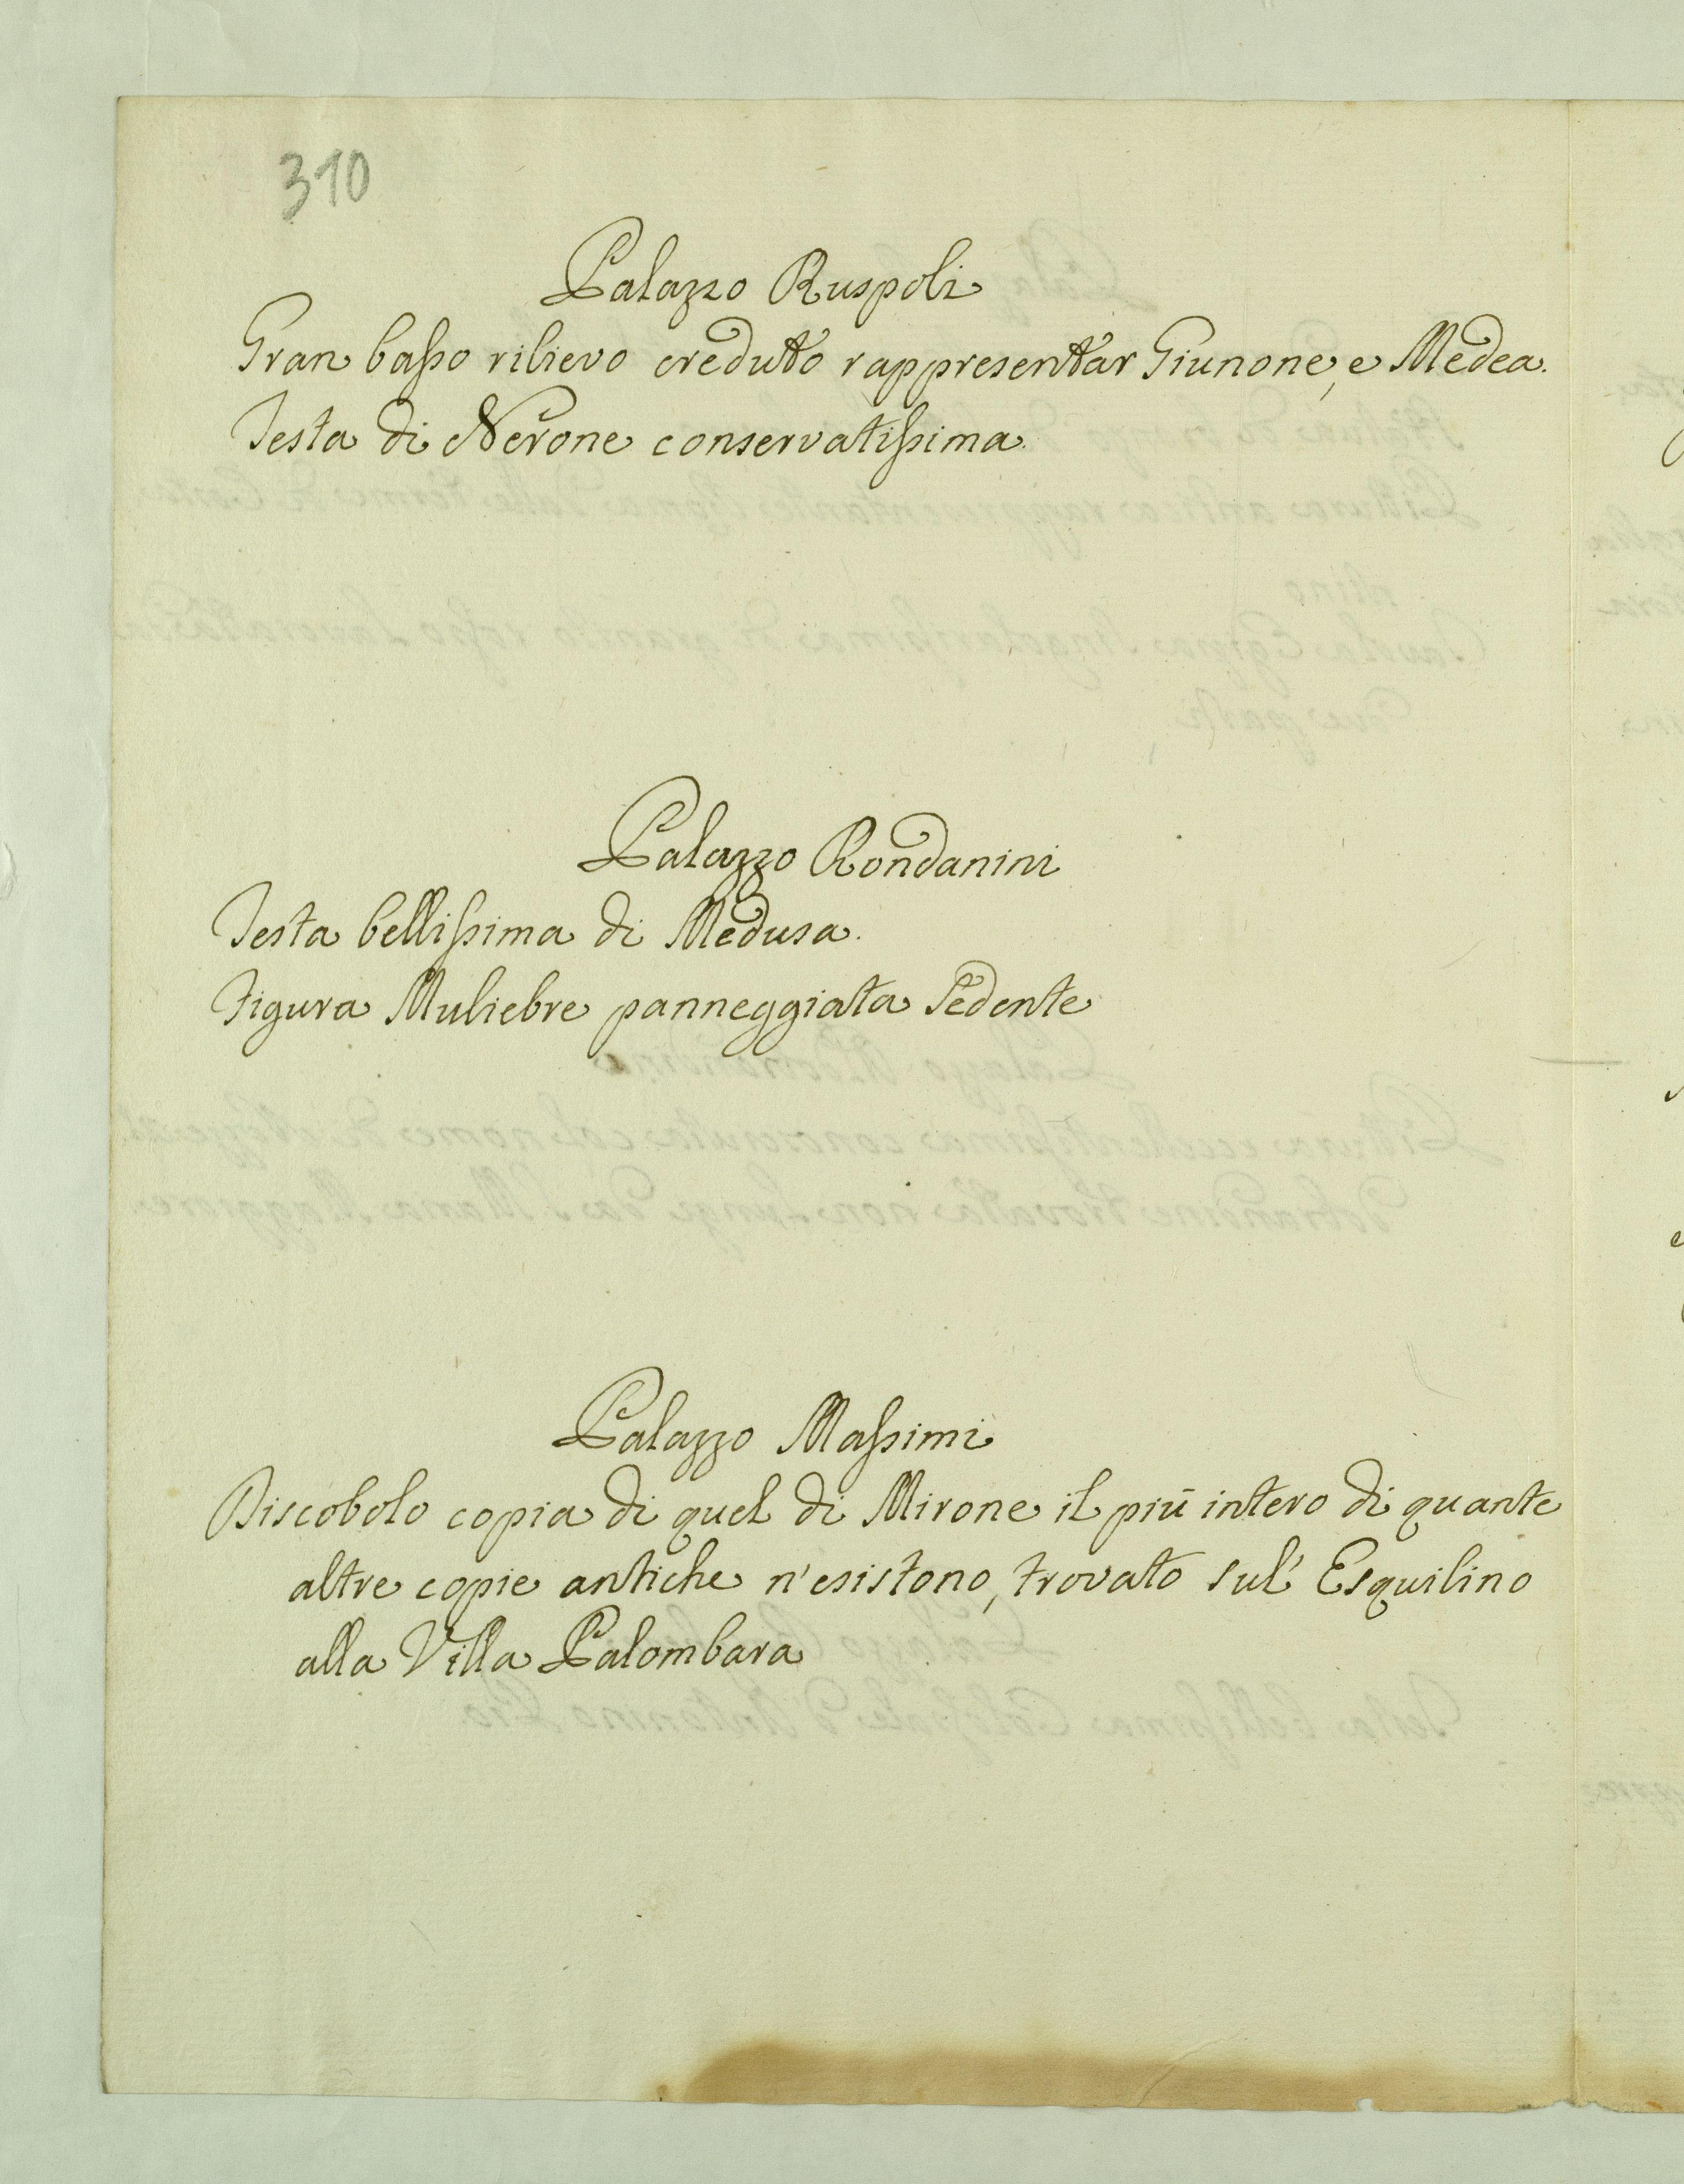 310
Palazzo Ruspoli
Gran basso rilievo creduto rappresentar Giunone, e Medea.
Testa di Nerone conservatissima.
Palazzo Rondanini
Testa bellissima di Medusa.
Figura Muliebre panneggiata Sedente
Palazzo Massimi
Discobolo copia di quel di Mirone il più intero di quante
altre copie antiche n'esistono, trovato sul' Esquilino
alla Villa Palombara